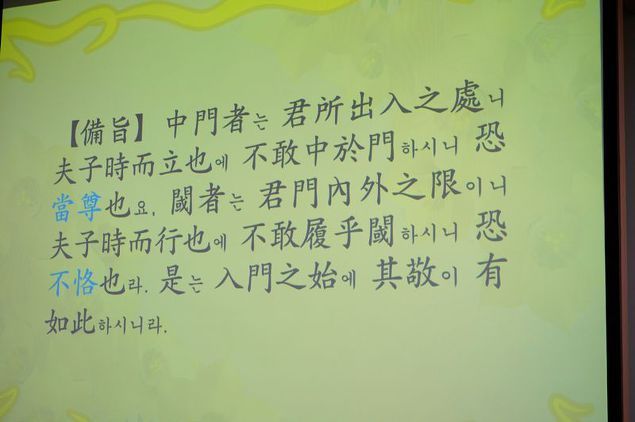 【備旨】 中門者는 君所出入之處니
夫子時而立也에 不敢中於門하시니 恐
當尊也요, 閾者는 君門內外之限이니
夫子時而行也에 不敢履乎閾하시니 恐
不恪也라. 是는 入門之始에 其敬이 有
如此하시니라.